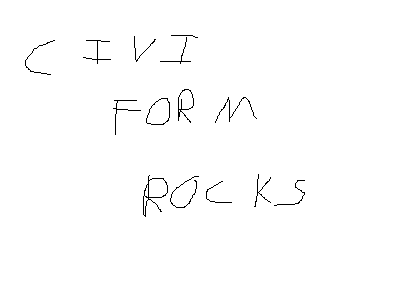 CIVI
FORM
ROCKS